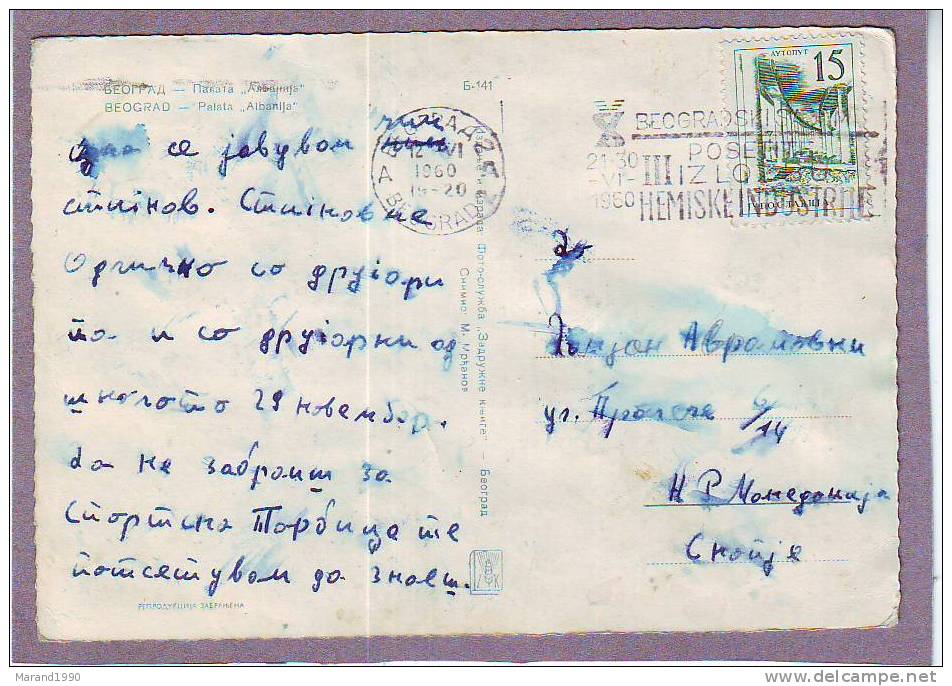 БЕОГРАД — Палата „Албанија“
BEOGRAD — Palata „Albanija“
Б-141
се јавувам
Одлично со другари
та и со другарки од
школото 29 Новембар.
да не забраиш за
Спортска Торбица те
потсетувам да знаеш.
РЕПРОДУКЦИЈА ЗАБРАЊЕНА
Фото-служба „Задружне књиге“ — Београд
Снимио: М. Мрђанов
BEOGRAD
12 VI
1960
19-20
BEOGRADSKI SAJAM
POSETITE
21-30
-VI-
1960
III IZLOŽBU
HEMISKE INDUSTRIJE
АУТОПУТ
15
ЈУГОСЛАВИЈА
До
Аврамовски
ул.
6/14
Н Р Македонија
Скопје
Marand1990
delcampe.net